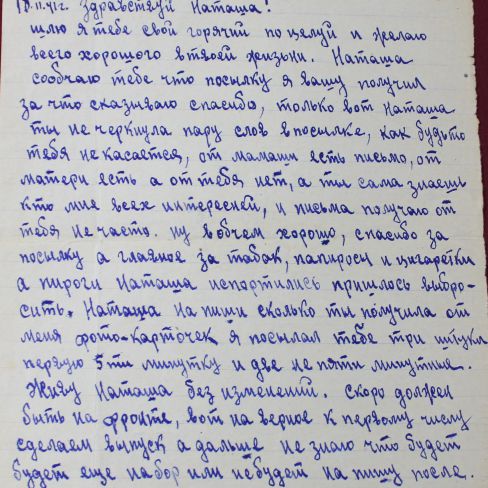 18.11.41г. Здравствуй Наташа!
шлю я тебе свой горячий поцелуй и желаю
всего хорошого в твоей жизни. Наташа
сообчаю тебе что посылку я вашу получил
за что сказываю спасибо, только вот Наташа
ты не черкнула пару слов в посылке, как будьто
тебя не касается, от мамаши есть письмо, от
матери есть а от тебя нет, а ты сама знаешь
кто мне всех интересней, и письма получаю от
тебя не часто. ну вобчем хорошо, спасибо за
посылку а главное за табак, папиросы и цигаретки
а пироги Наташа испортились пришлось выбро-
сить. Наташа напиши сколько ты получила от
меня фото-карточек я посылал тебе три штуки
первую 5ти минутку и две не пяти минутные.
Живу Наташа без изменений. скоро должен
быть на фронте, вот на верное к первому числу
сделаем выпуск а дальше не знаю что будет
будет еще набор или небудет напишу после.